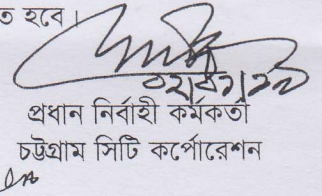 ত হবে।
প্রধান নির্বাহী কর্মকর্তা
চট্টগ্রাম সিটি কর্পোরেশন